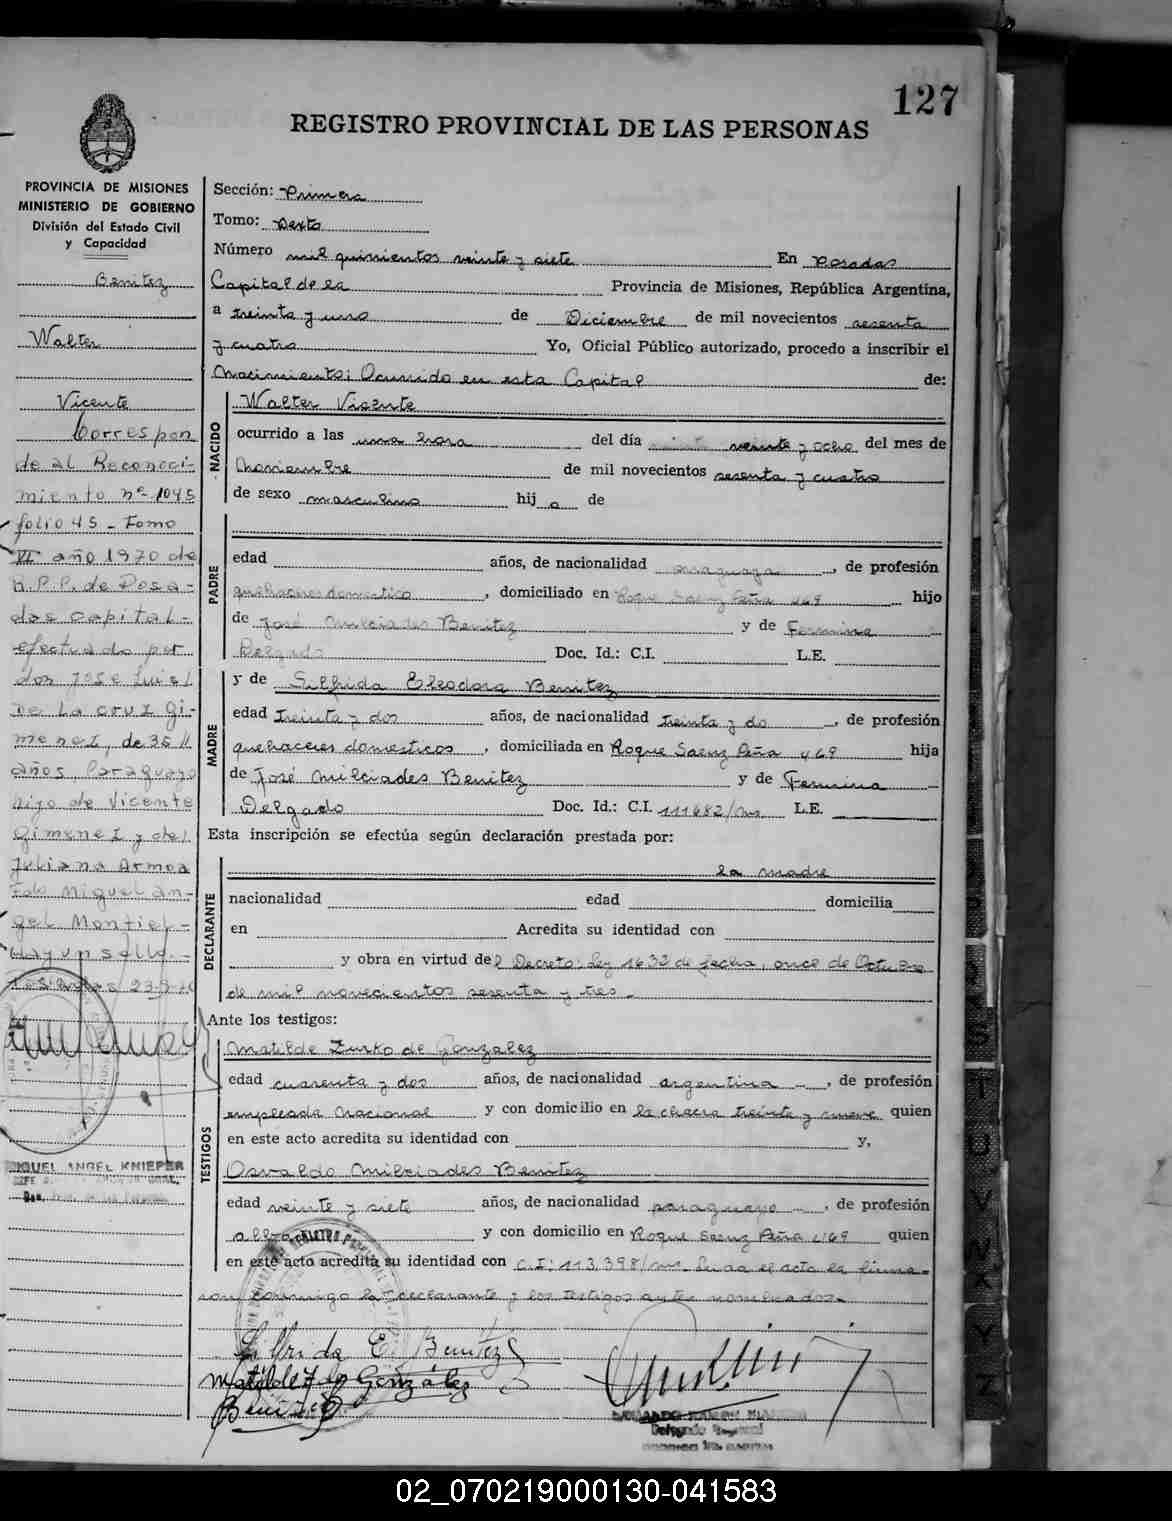 127
REGISTRO PROVINCIAL DE LAS PERSONAS
PROVINCIA DE MISIONES
MINISTERIO DE GOBIERNO
División del Estado Civil
y Capacidad
Benitez
Walter
Vicente
Correspon
de al Reconoci-
miento nº 1045
folio 45 - Tomo
VI año 1970 de
R.P.P. de Posa-
das capital-
efectuado por
don Jose Luis
De La cruz Gi-
menez, de 35
años Paraguayo
hijo de Vicente
Gimenez y de
Juliana Armoa
Fdo Miguel An-
gel Montiel-
Hay un sello.-
Posadas 23-9-70
MIGUEL ANGEL KNIEPER
Sección: Primera
Tomo: Sexto
Número mil quinientos veinte y siete En Posadas
Capital de la Provincia de Misiones, República Argentina,
a treinta y uno de Diciembre de mil novecientos sesenta
y cuatro Yo, Oficial Público autorizado, procedo a inscribir el
Nacimiento: Ocurrido en esta Capital de:
NACIDO
Walter Vicente
ocurrido a las una hora del día veinte y ocho del mes de
Noviembre de mil novecientos sesenta y cuatro
de sexo masculino hij o de
PADRE
edad años, de nacionalidad paraguaya, de profesión
quehaceres domestico, domiciliado en Roque Saenz Peña 469 hijo
de José Milciades Benitez y de Fermina
Delgado Doc. Id.: C.I. L.E.
MADRE
y de Silfrida Eleodora Benitez
edad treinta y dos años, de nacionalidad treinta y do, de profesión
quehaceres domesticos, domiciliada en Roque Saenz Peña 469 hija
de José Milciades Benitez y de Fermina
Delgado Doc. Id.: C.I. 111682/ms. L.E.
Esta inscripción se efectúa según declaración prestada por:
DECLARANTE
la madre
nacionalidad edad domicilia
en Acredita su identidad con
y obra en virtud del Decreto: Ley 1632 de fecha, once de Octubre
de mil novecientos sesenta y tres.-
Ante los testigos:
TESTIGOS
Matilde Zurko de Gonzalez
edad cuarenta y dos años, de nacionalidad argentina -, de profesión
empleada Nacional y con domicilio en la chacra treinta y nueve quien
en este acto acredita su identidad con y,
Osvaldo Milciades Benitez
edad veinte y siete años, de nacionalidad paraguayo -, de profesión
y con domicilio en Roque Saenz Peña 469 quien
en este acto acredita su identidad con C.I: 113.398/ms. el acto la firma-
ron conmigo la declarante y los testigos antes nombrados.-
Silfrida E. Benitez
Matilde Z de González
Benitez
Delegado
S
T
U
V
W
X
Y
Z
02_070219000130-041583